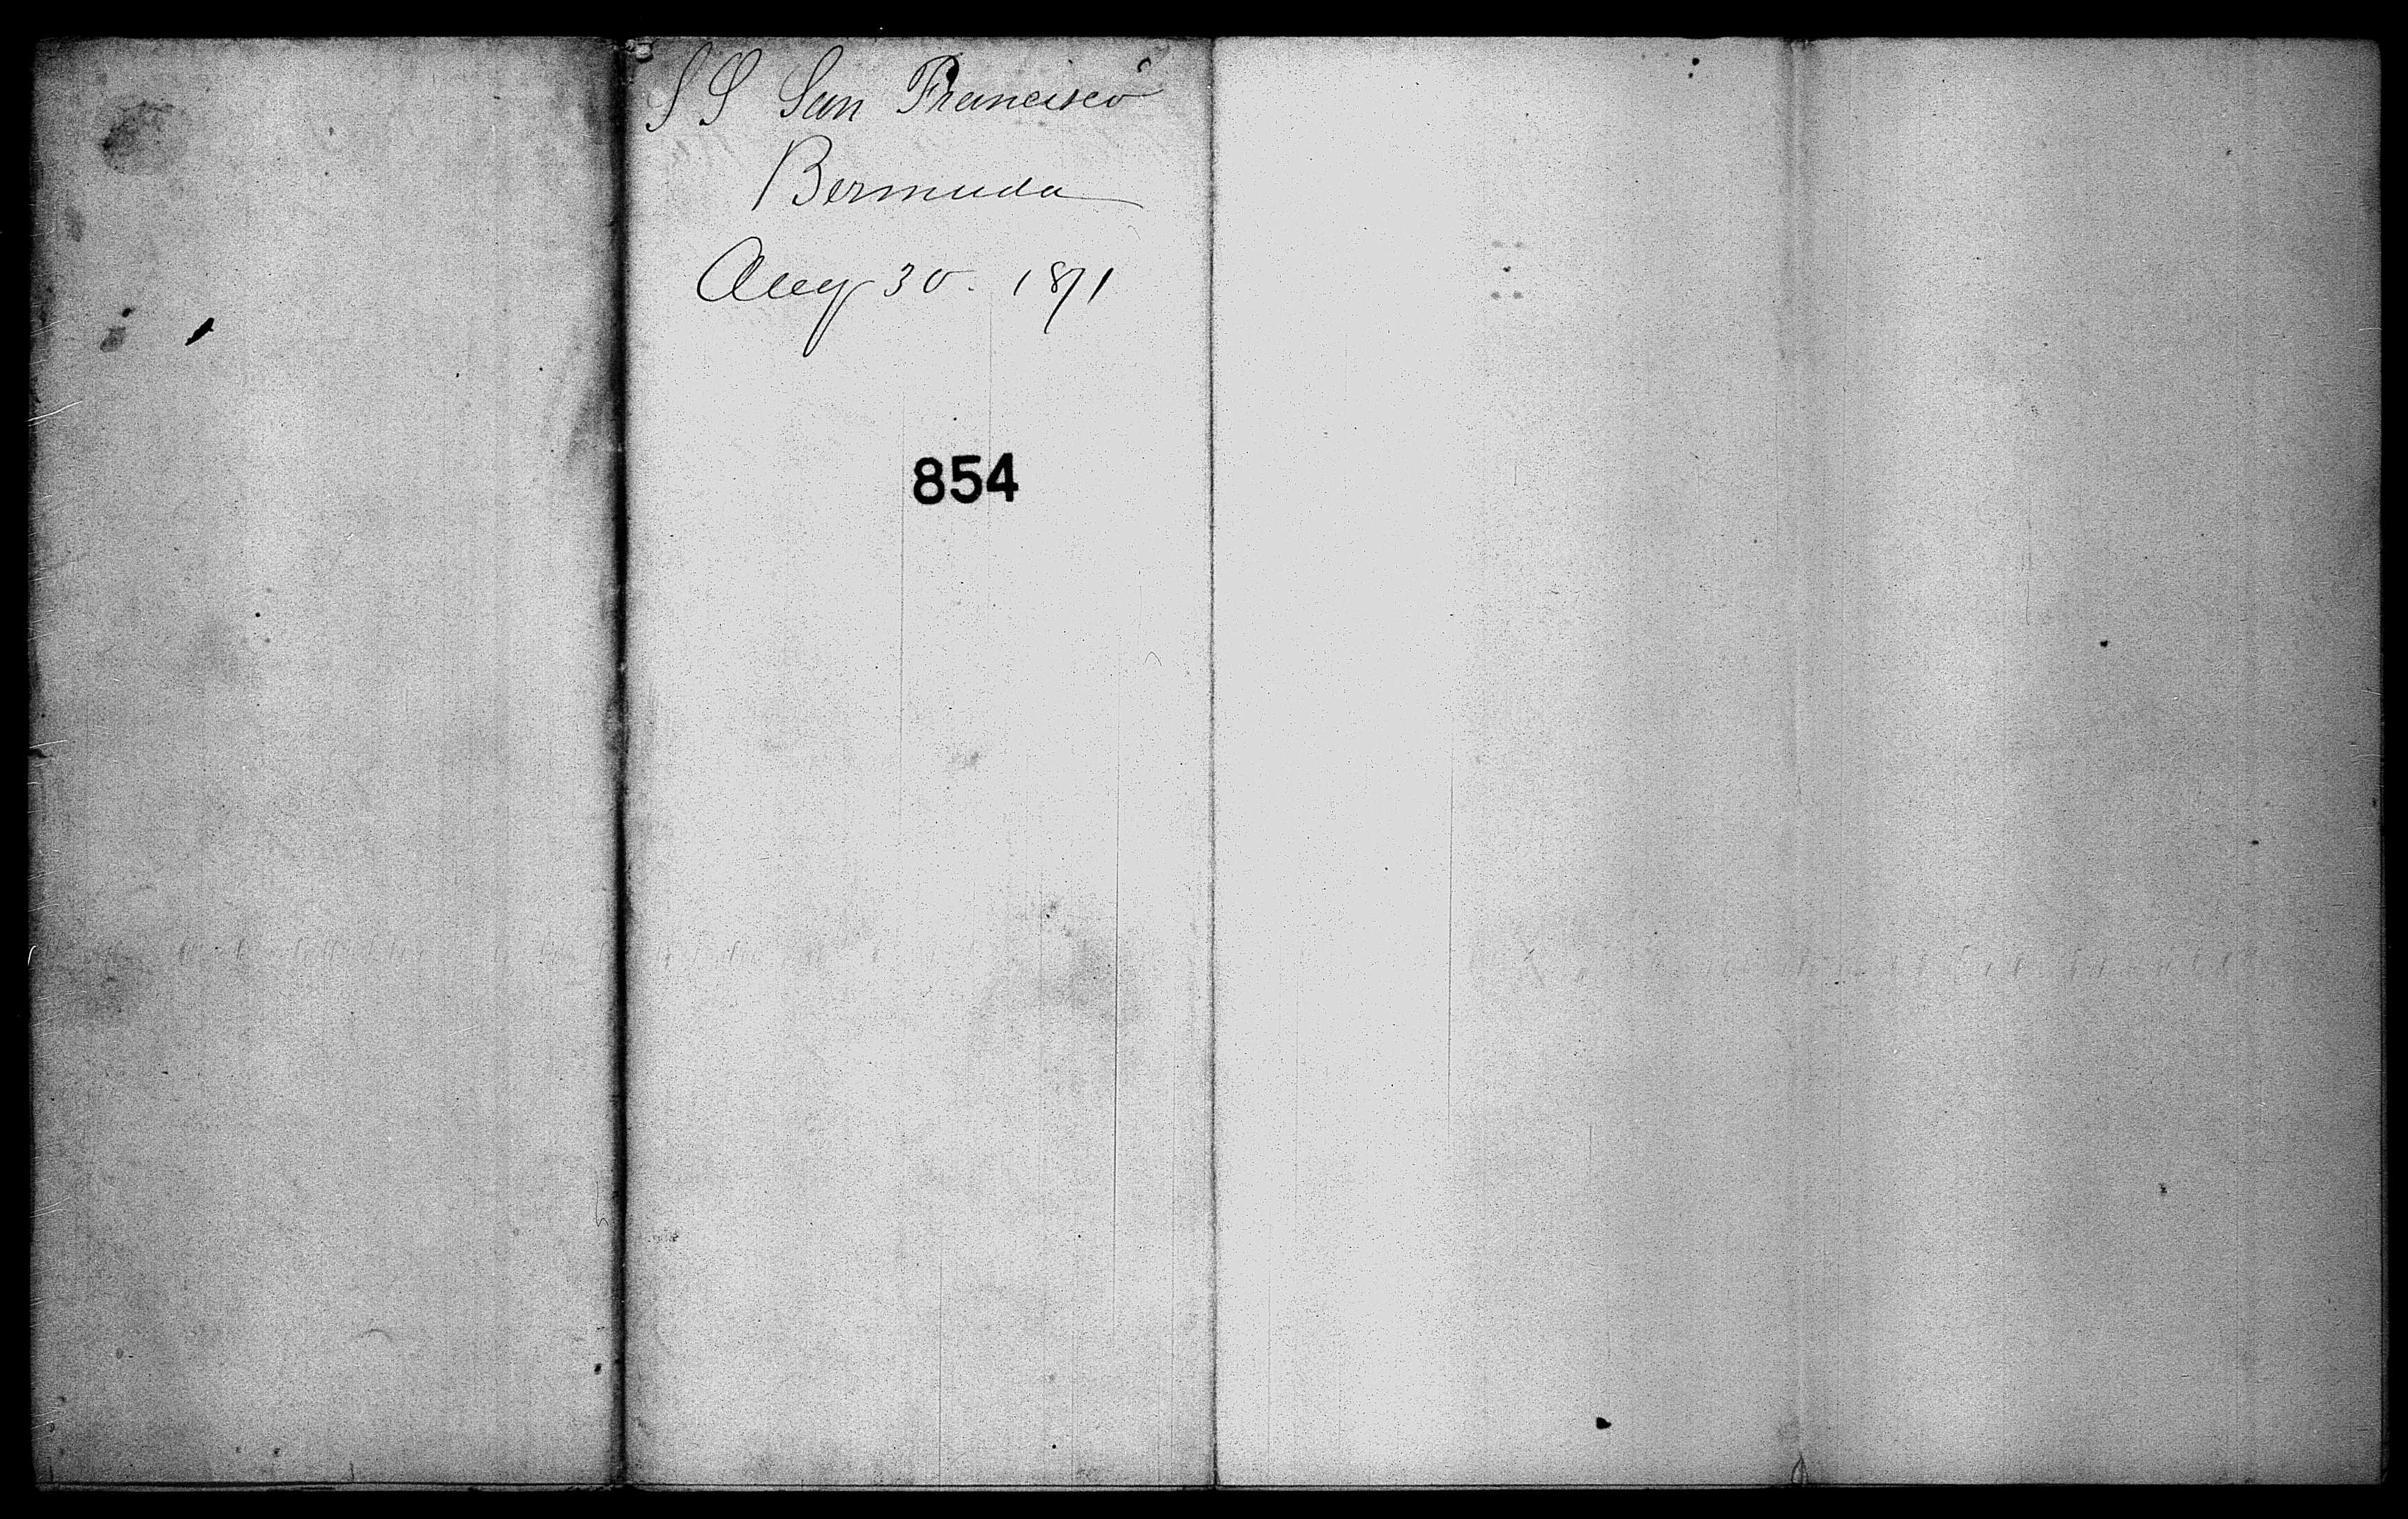 S S San Francisco
Bermuda
Aug 30. 1871
854